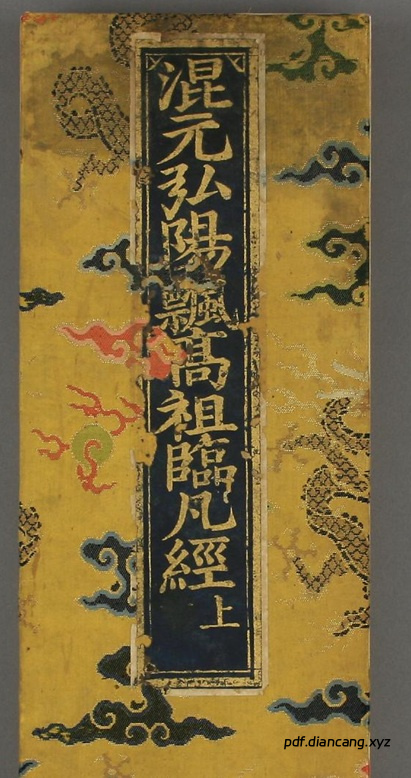 混元弘陽飄髙祖臨凡經上
pdf.diancang.xyz